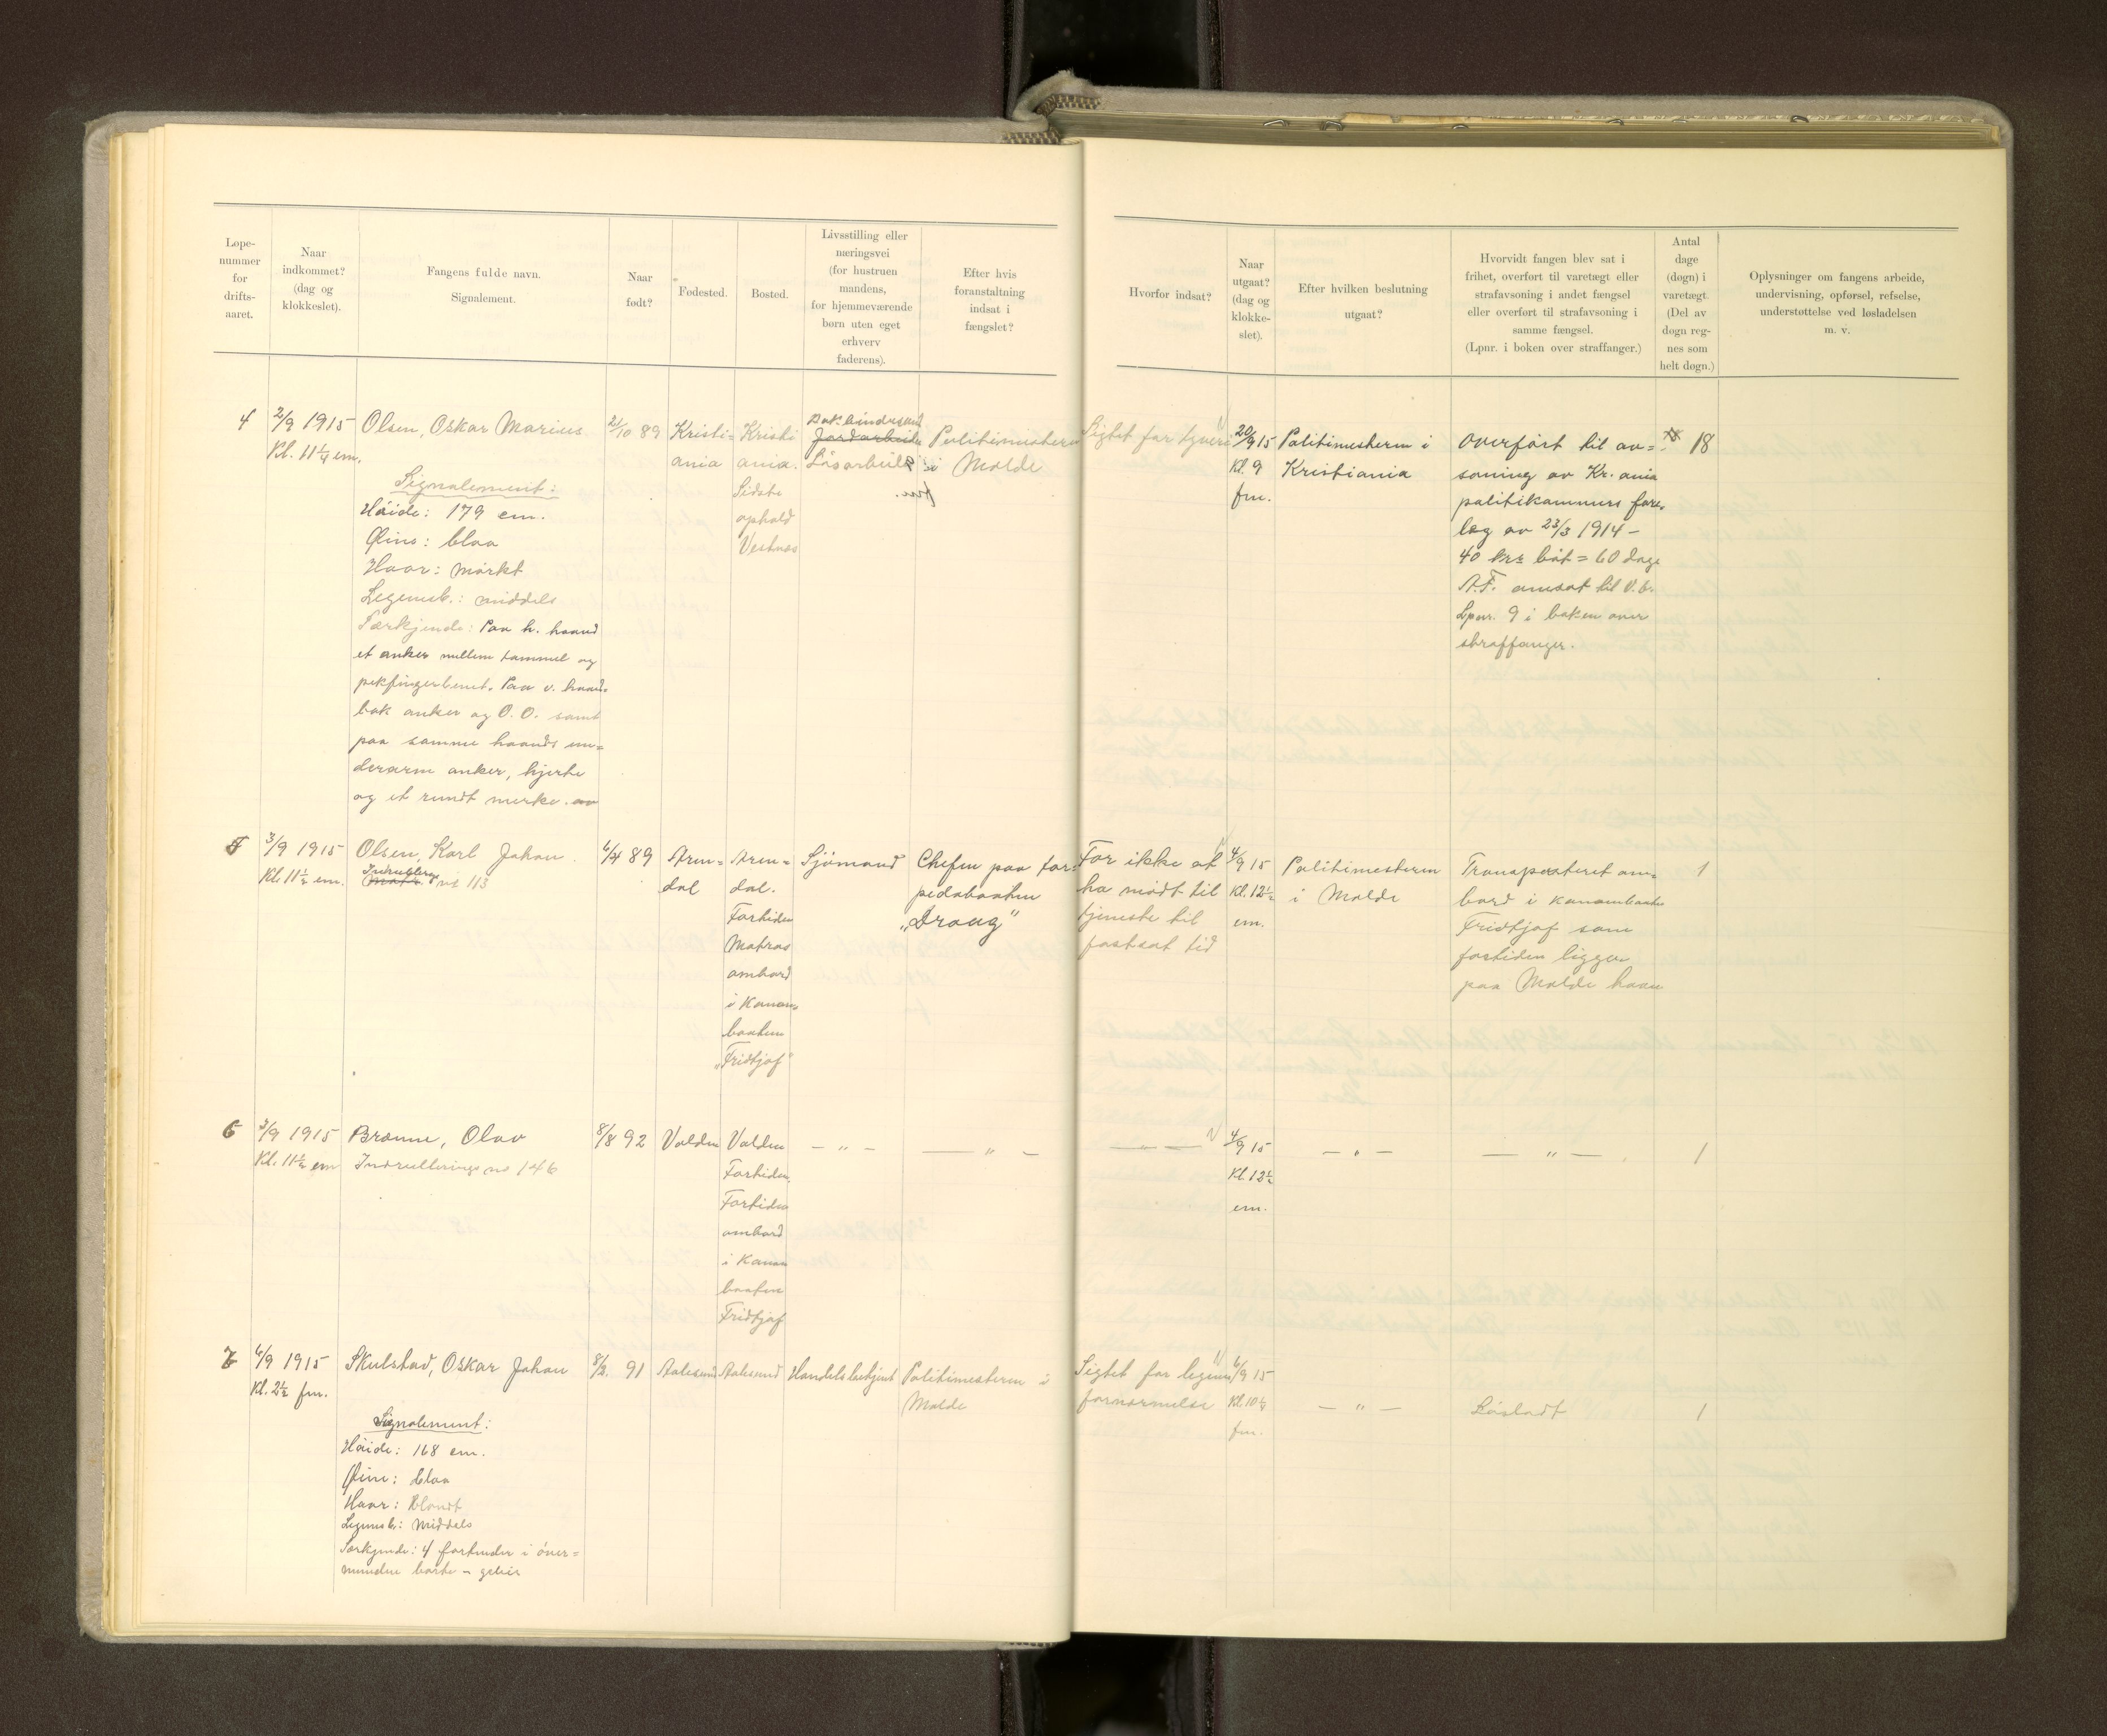 Løpe-
nummer
for
drifts-
aaret.
Naar
indkommet?
(dag og
klokkeslet).
Fangens fulde navn.
Signalement.
Naar
født?
Fødested.
Bosted.
Livsstilling eller
næringsvei
(for hustruen
mandens,
for hjemmeværende
børn uten eget
erhverv
faderens).
Efter hvis
foranstaltning
indsat i
fængslet?
Hvorfor indsat?
Naar
utgaat?
(dag og
klokke-
slet).
Efter hvilken beslutning
utgaat?
Hvorvidt fangen blev sat i
frihet, overført til varetægt eller
strafavsoning i andet fængsel
eller overført til strafavsoning i
samme fængsel.
(Lpnr. i boken over straffanger.)
Antal
dage
(døgn) i
varetægt.
(Del av
døgn reg-
nes som
helt døgn.)
Oplysninger om fangens arbeide,
undervisning, opførsel, refselse,
understøttelse ved løsladelsen
m. v.
4
2/9 1915
Kl. 11 1/4 em.
Olsen, Oskar Marius
Signalement:
Høide: 179 cm.
Øine: blaa
Haar: mørkt
Legemsb.: middels
Særkjende: Paa h. haand
et anker mellem tommel og
pekfingerbenet. Paa v. haand-
bak anker og O. O. samt
paa samme haands un=
derarm anker, hjerte
og et rundt merke.
2/10 89
Kristi=
ania
Kristi
ania.
Sidste
ophold
Vestnes
Jordarbeider
Løsarbeider
Politimesteren
i Molde
Sigtet for tyveri
20/9 15
Kl. 9
fm.
Politimesteren i
Kristiania
Overført til av=
soning av Kr.ania
politikammers fore-
læg av 23/3 1914 –
40 krs bøt = 60 dage
A.F. omsat til V.b.
Lpnr. 9 i boken over
straffanger.
18
5
3/9 1915
Kl. 11 1/2 em.
Olsen, Karl Johan.
Indrullerings
no 113
6/4 89
Aren=
dal
Aren=
dal.
Fortiden
Matros
ombord
i Kanon-
baaten
„Fridtjof"
Sjömand
Chefen paa tor-
pedobaaten
„Draug"
For ikke at
ha mödt til
tjeneste til
fastsat tid
4/9 15
Kl. 12 1/2
em.
Politimesteren
i Molde
Transporteret om-
bord i kanonbaaten
Fridtjof som
fortiden ligger
paa Molde havn
1
6
3/9 1915
Kl. 11 1/2 em
Brænne, Olav
Indrullerings no 146
8/8 92
Valden
Valden
Fortiden
Fortiden
ombord
i Kanon
baaten
Fridtjof
— „ —
— „ —
— „ —
4/9 15
Kl. 12 1/2
em.
— „ —
— „ —
1
7
6/9 1915
Kl. 2 1/2 fm.
Skulstad, Oskar Johan
Signalement:
Høide: 168 cm.
Øine: blaa
Haar: Blondt
Legemsb: Middels
Særkjende: 4 fortænder i över=
munden borte –
8/2. 91
Aalesund
Aalesund
Handelsbetjent
Politimesteren i
Molde
Sigtet for legems
fornærmelse
6/9 15
Kl. 10 1/4
fm.
— „ —
Løsladt
1